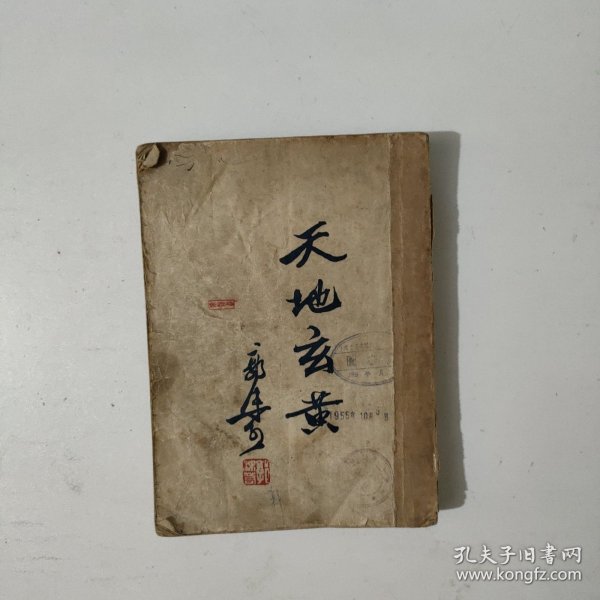 天地玄黄
郭沫若
1955年10月6日
孔夫子旧书网
www.kongfz.com